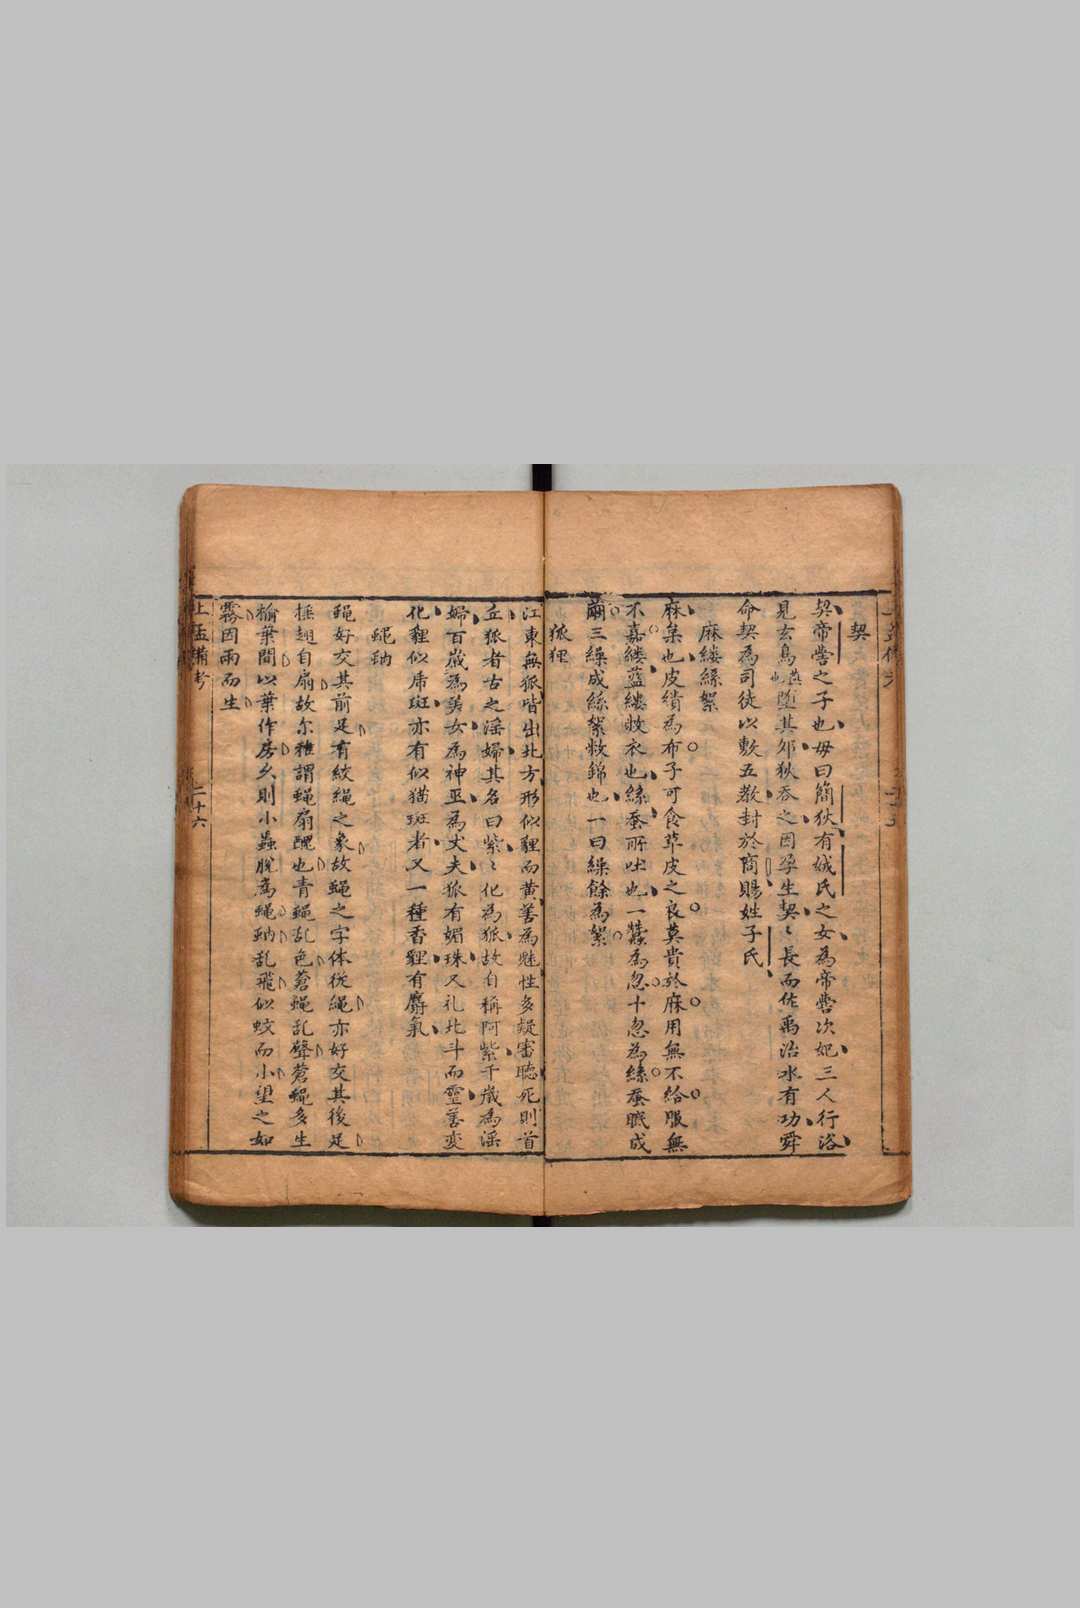 契
契帝嚳之子也毋曰簡狄有娀氏之女為帝嚳次妃三人行浴
見玄鳥燕也墮其卵狄吞之因孕生契〻長而佐禹治水有功舜
命契為司徒以敷五教封於商賜姓子氏
麻縷絲絮
麻枲也皮績為布子可食草皮之良莫貴於麻用無不給服無
不嘉縷藍縷敝衣也絲蚕所吐也一蠶為忽十忽為絲蚕眠成
繭三繅成絲絮敝錦也一曰繅餘為絮
狐狸
江東無狐皆出北方形似貍而黄善為魅性多疑審聴死則首
丘狐者古之淫婦其名曰紫〻化為狐故自稱阿紫千歲為淫
婦百歲為美女為神巫為丈夫狐有媚珠又礼北斗而靈善変
化貍似虎斑亦有似猫斑者又一種香貍有麝氣
蝇蚋
蝇好交其前足有絞繩之象故蝇之字体從繩亦好交其後足
揺翅自扇故尔雅謂蝇扇醜也青蝇乱色蒼蝇乱聲蒼蝇多生
榆葉間以葉作房久則小蟲脫為蝇蚋乱飛似蚊而小望之如
霧因雨而生
上孟備考
二十六